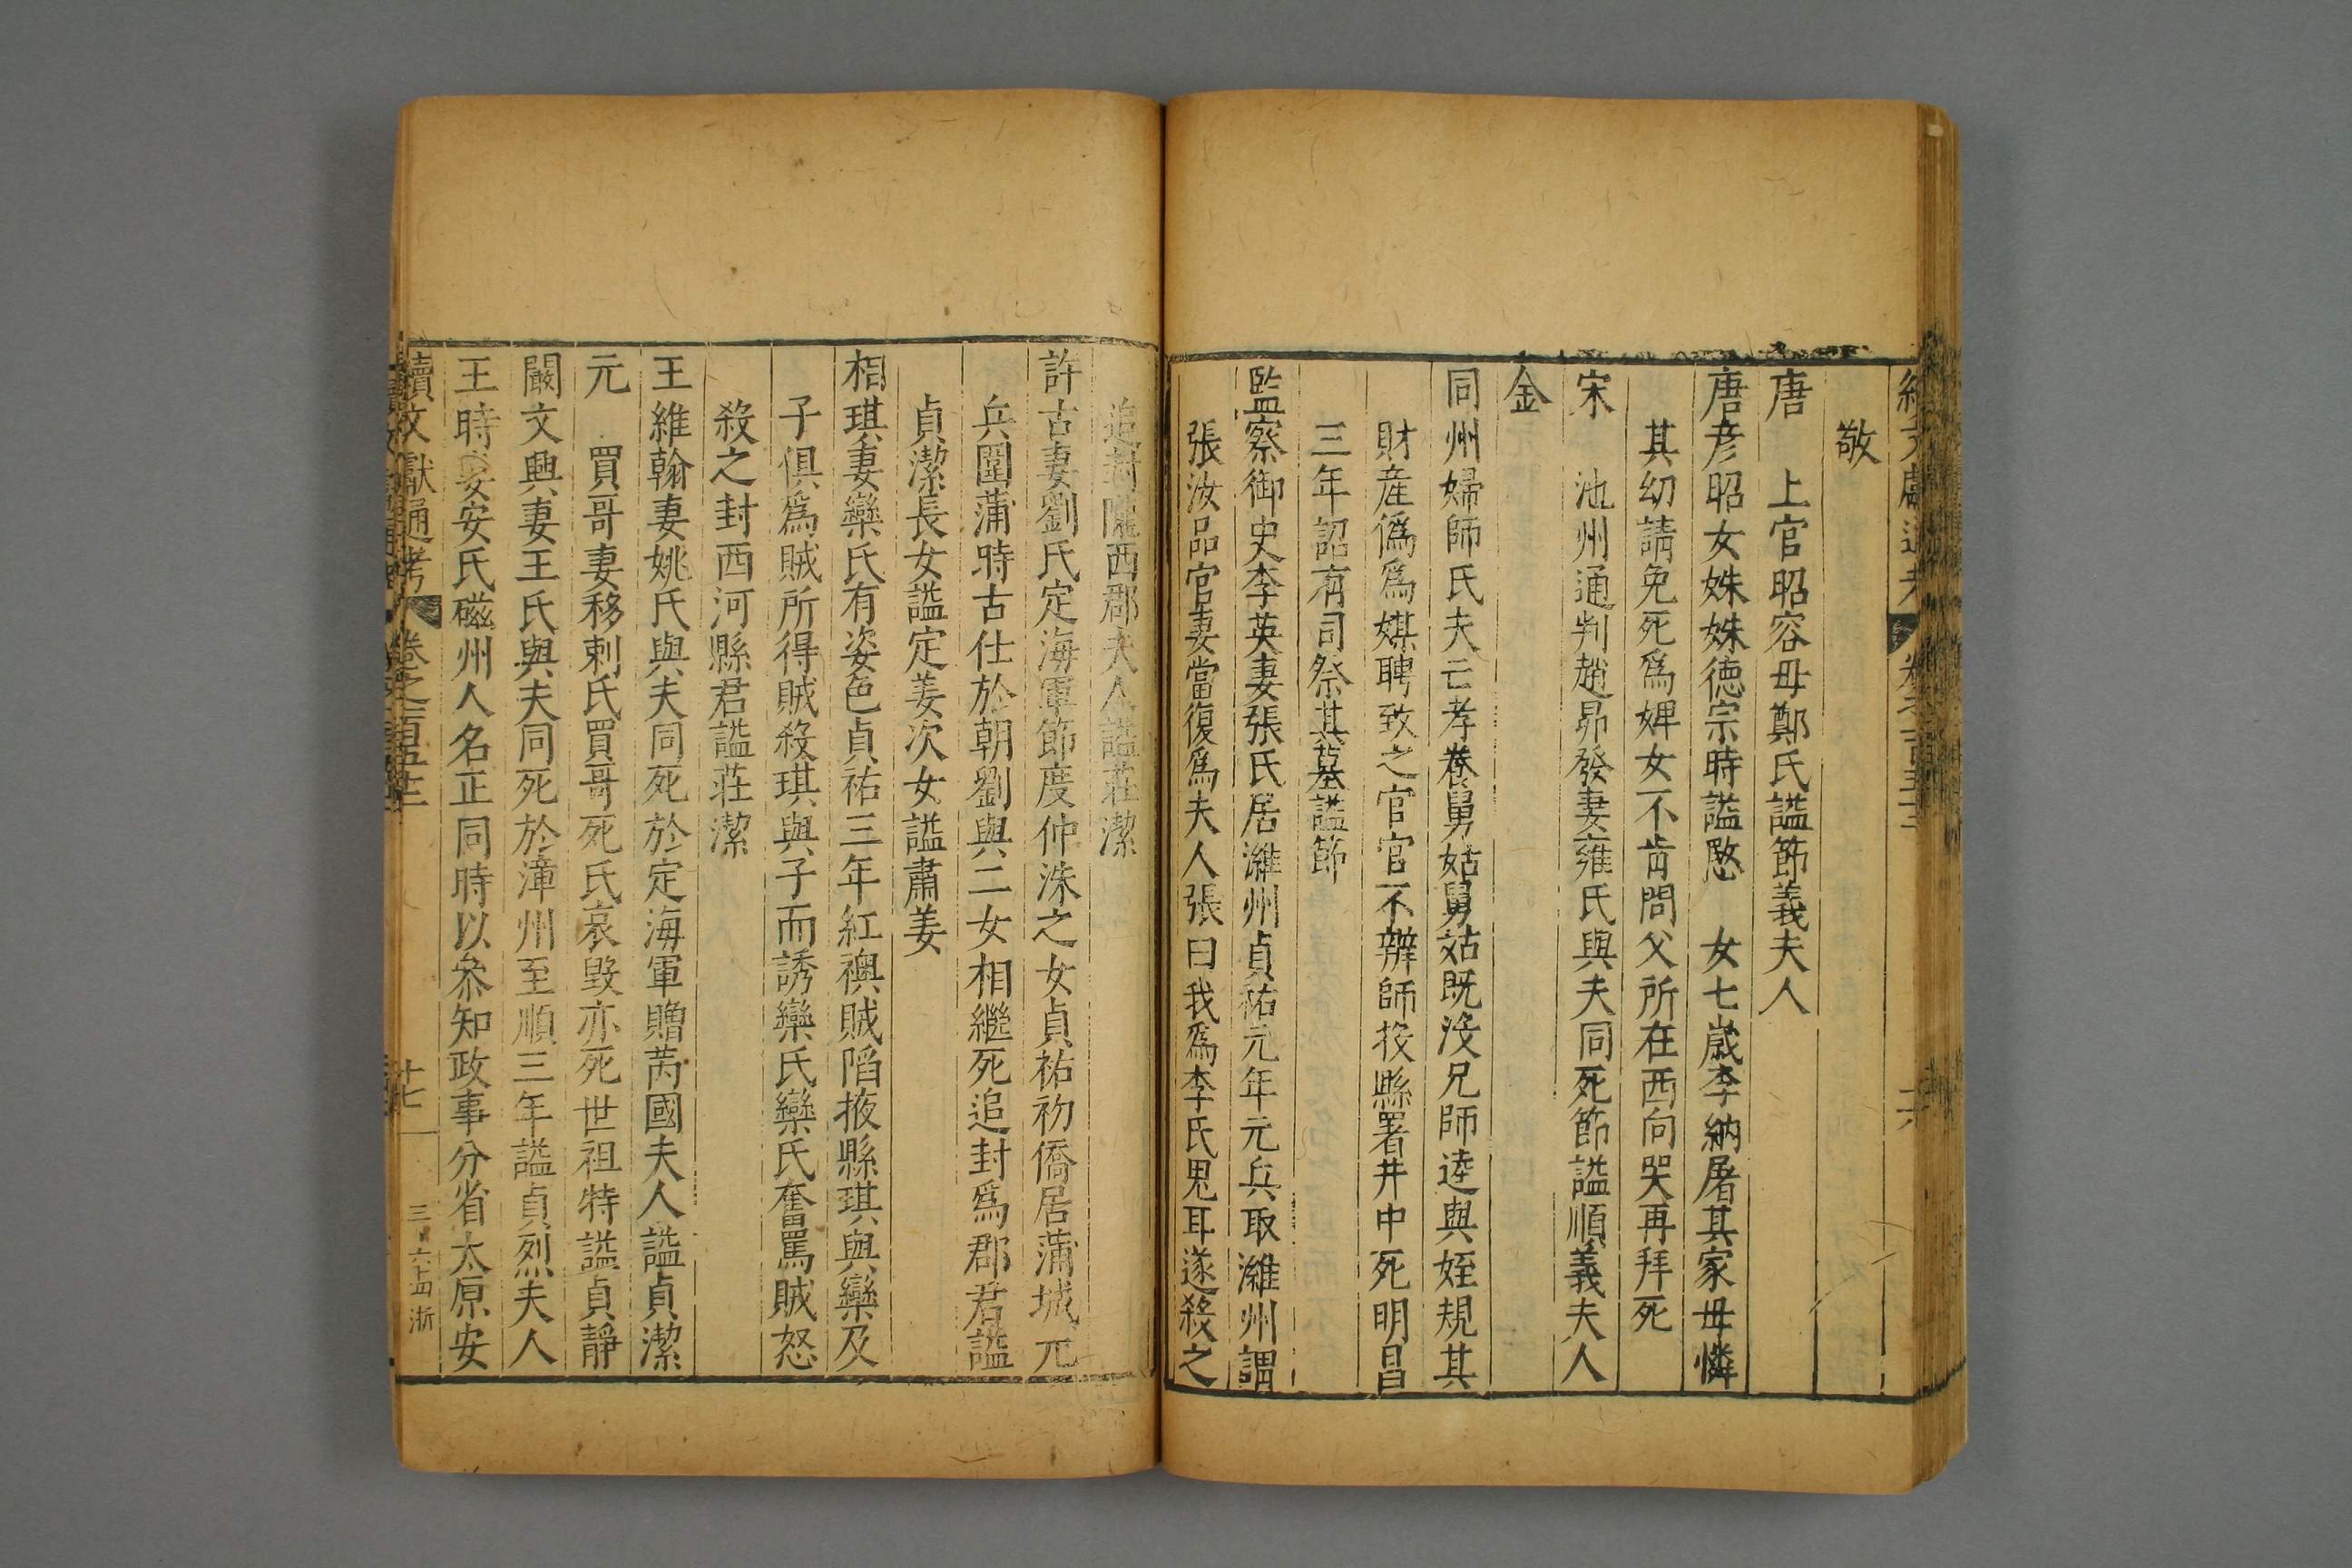 敬
唐　上官昭容母鄭氏謚節義夫人
唐彦昭女姝姝徳宗時謚愍　女七歲李納屠其家母憐
其幼請免死爲婢女不肯問父所在西向哭再拜死
宋　池州通判趙昴發妻雍氏與夫同死節謚順義夫人
金
同州婦師氏夫亡孝養舅姑舅姑既没兄師逵與姪規其
財産僞爲媒聘致之官官不辨師投縣署井中死明昌
三年詔有司祭其墓謚節
監察御史李英妻張氏居濰州貞祐元年元兵取濰州謂
張汝品官妻當復爲夫人張曰我爲李氏鬼耳遂殺之
追封隴西郡夫人謚莊潔
許古妻劉氏定海軍節度仲洙之女貞祐初僑居蒲城元
兵圍蒲時古仕於朝劉與二女相繼死追封爲郡君謚
貞潔長女謚定姜次女謚肅姜
相琪妻欒氏有姿色貞祐三年紅襖賊陷掖縣琪與欒及
子俱爲賊所得賊殺琪與子而誘欒氏欒氏奮罵賊怒
殺之封西河縣君謚莊潔
王維翰妻姚氏與夫同死於定海軍贈芮國夫人謚貞潔
元　買哥妻移剌氏買哥死氏哀毀亦死世祖特謚貞靜
闞文興妻王氏與夫同死於漳州至順三年謚貞烈夫人
王時妻安氏磁州人名正同時以叅知政事分省太原安
續文獻通考　卷之一百五十三　十七　三六十四　浙